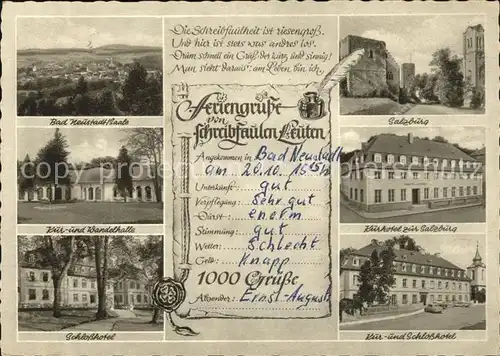 Die Schreibfaulheit ist riesengroß,
Und hier ist stets was andres los.
Drum schnell ein Gruß, der kurz und sinnig!
Man sieht daraus: am Leben bin ich.
Feriengrüße
von
schreibfaulen Leuten
Angekommen in Bad Neustadt
am 20.10. 15
Unterkunft: gut
Verpflegung: sehr gut
Durst: enorm
Stimmung: gut
Wetter: schlecht
Geld: Knapp
1000 Grüße
Absender: Ernst-August
Bad Neustadt/Saale
Kur- und Wandelhalle
Schloßhotel
Salzburg
Kurhotel zur Salzburg
Kur- und Schloßhotel